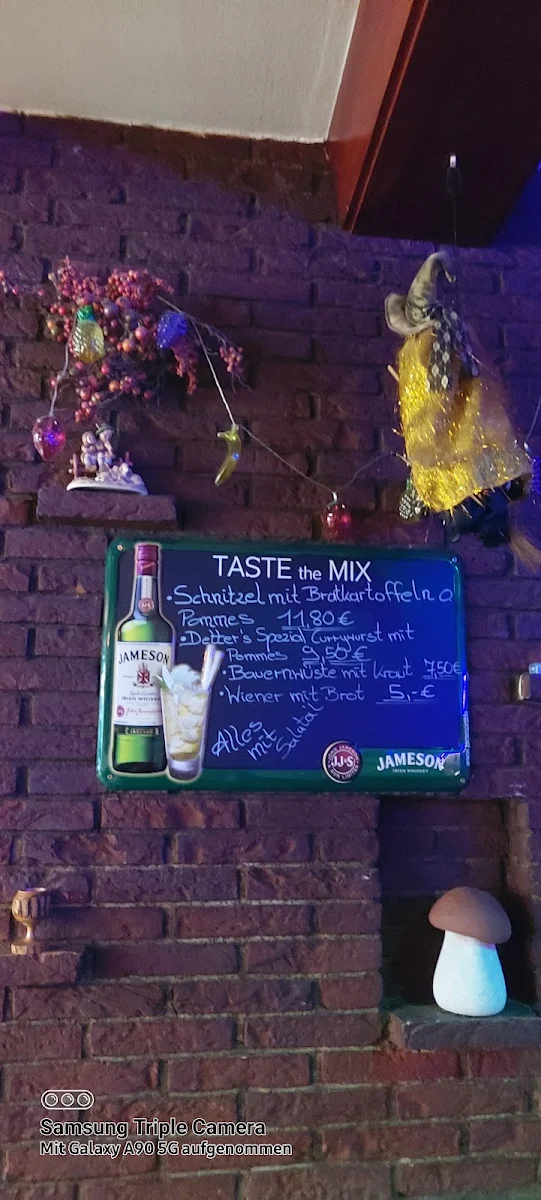 TASTE the MIX
• Schnitzel mit Bratkartoffeln o.
Pommes 11.80 €
• Detter's Spezial Currywurst mit
Pommes 9,50 €
• Bauernwüste mit Kraut 7,50€
• Wiener mit Brot 5,-€
Alles
mit
Salatal
JAMESON
IRISH WHISKEY
JJ&S
JAMESON
IRISH WHISKEY
Samsung Triple Camera
Mit Galaxy A90 5G aufgenommen